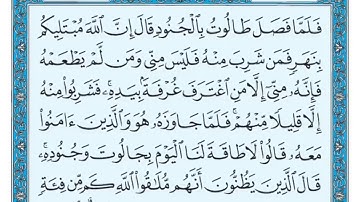 فَلَمَّا فَصَلَ طَالُوتُ بِالْجُنُودِ قَالَ إِنَّ اللَّهَ مُبْتَلِيكُم
بِنَهَرٍ فَمَن شَرِبَ مِنْهُ فَلَيْسَ مِنِّي وَمَن لَّمْ يَطْعَمْهُ
فَإِنَّهُ مِنِّي إِلَّا مَنِ اغْتَرَفَ غُرْفَةً بِيَدِهِ فَشَرِبُوا مِنْهُ
إِلَّا قَلِيلًا مِّنْهُمْ فَلَمَّا جَاوَزَهُ هُوَ وَالَّذِينَ ءَامَنُوا
مَعَهُ قَالُوا لَا طَاقَةَ لَنَا الْيَوْمَ بِجَالُوتَ وَجُنُودِهِ
قَالَ الَّذِينَ يَظُنُّونَ أَنَّهُم مُّلَاقُوا اللَّهِ كَم مِّن فِئَةٍ